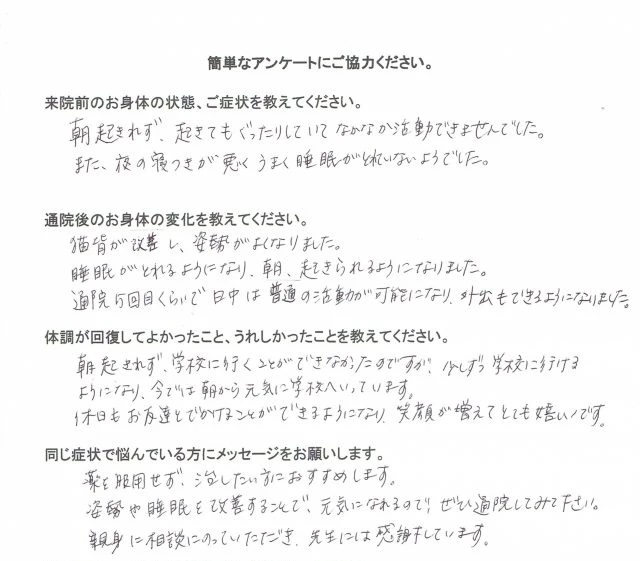 簡単なアンケートにご協力ください。
来院前のお身体の状態、ご症状を教えてください。
朝起きれず、起きてもぐったりしていてなかなか活動できませんでした。
また、夜の寝つきが悪くうまく睡眠がとれていないようでした。
通院後のお身体の変化を教えてください。
猫背が改善し、姿勢がよくなりました。
睡眠がとれるようになり、朝、起きられるようになりました。
通院5回目くらいで日中は普通の活動が可能になり、外出もできるようになりました。
体調が回復してよかったこと、うれしかったことを教えてください。
朝起きれず、学校に行くことができなかったのですが、少しずつ学校に行ける
ようになり、今では朝から元気に学校へいっています。
休日もお友達とでかけることができるようになり、笑顔が増えてとても嬉しいです。
同じ症状で悩んでいる方にメッセージをお願いします。
薬を服用せず、治したい方におすすめします。
姿勢や睡眠を改善することで、元気になれるので、ぜひ通院してみて下さい。
親身に相談にのっていただき、先生には感謝しています。